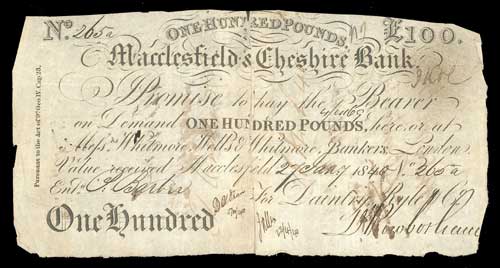 ONE HUNDRED POUNDS.
No. 265a £100.
Macclesfield & Cheshire Bank.
I Promise to pay the Bearer
on Demand ONE HUNDRED POUNDS, here or at
Messrs. Whitmore, Wells & Whitmore, Bankers, London,
Value received, Macclesfield 27 Jany. 1840 No. 265a
Entd.
For Daintry, Ryle & Co.
One Hundred
Pursuant to the Act of 9th Geo. IV. Cap. 23.